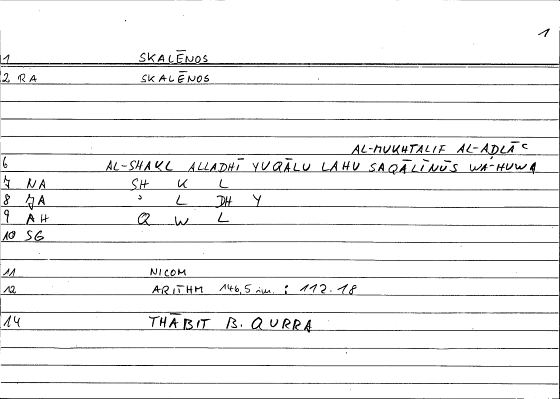 1
1 SKALĒNOS
2 RA SKALĒNOS
AL-MUKHTALIF AL-ADLĀᶜ
6 AL-SHAKL ALLADHĪ YUQĀLU LAHU SAQĀLĪNŪS WA-HUWA
7 NA SH K L
8 JA ʾ L DH Y
9 AH Q W L
10 SG
11 NICOM
12 ARITHM 146,5 : 112.18
14 THĀBIT B. QURRA